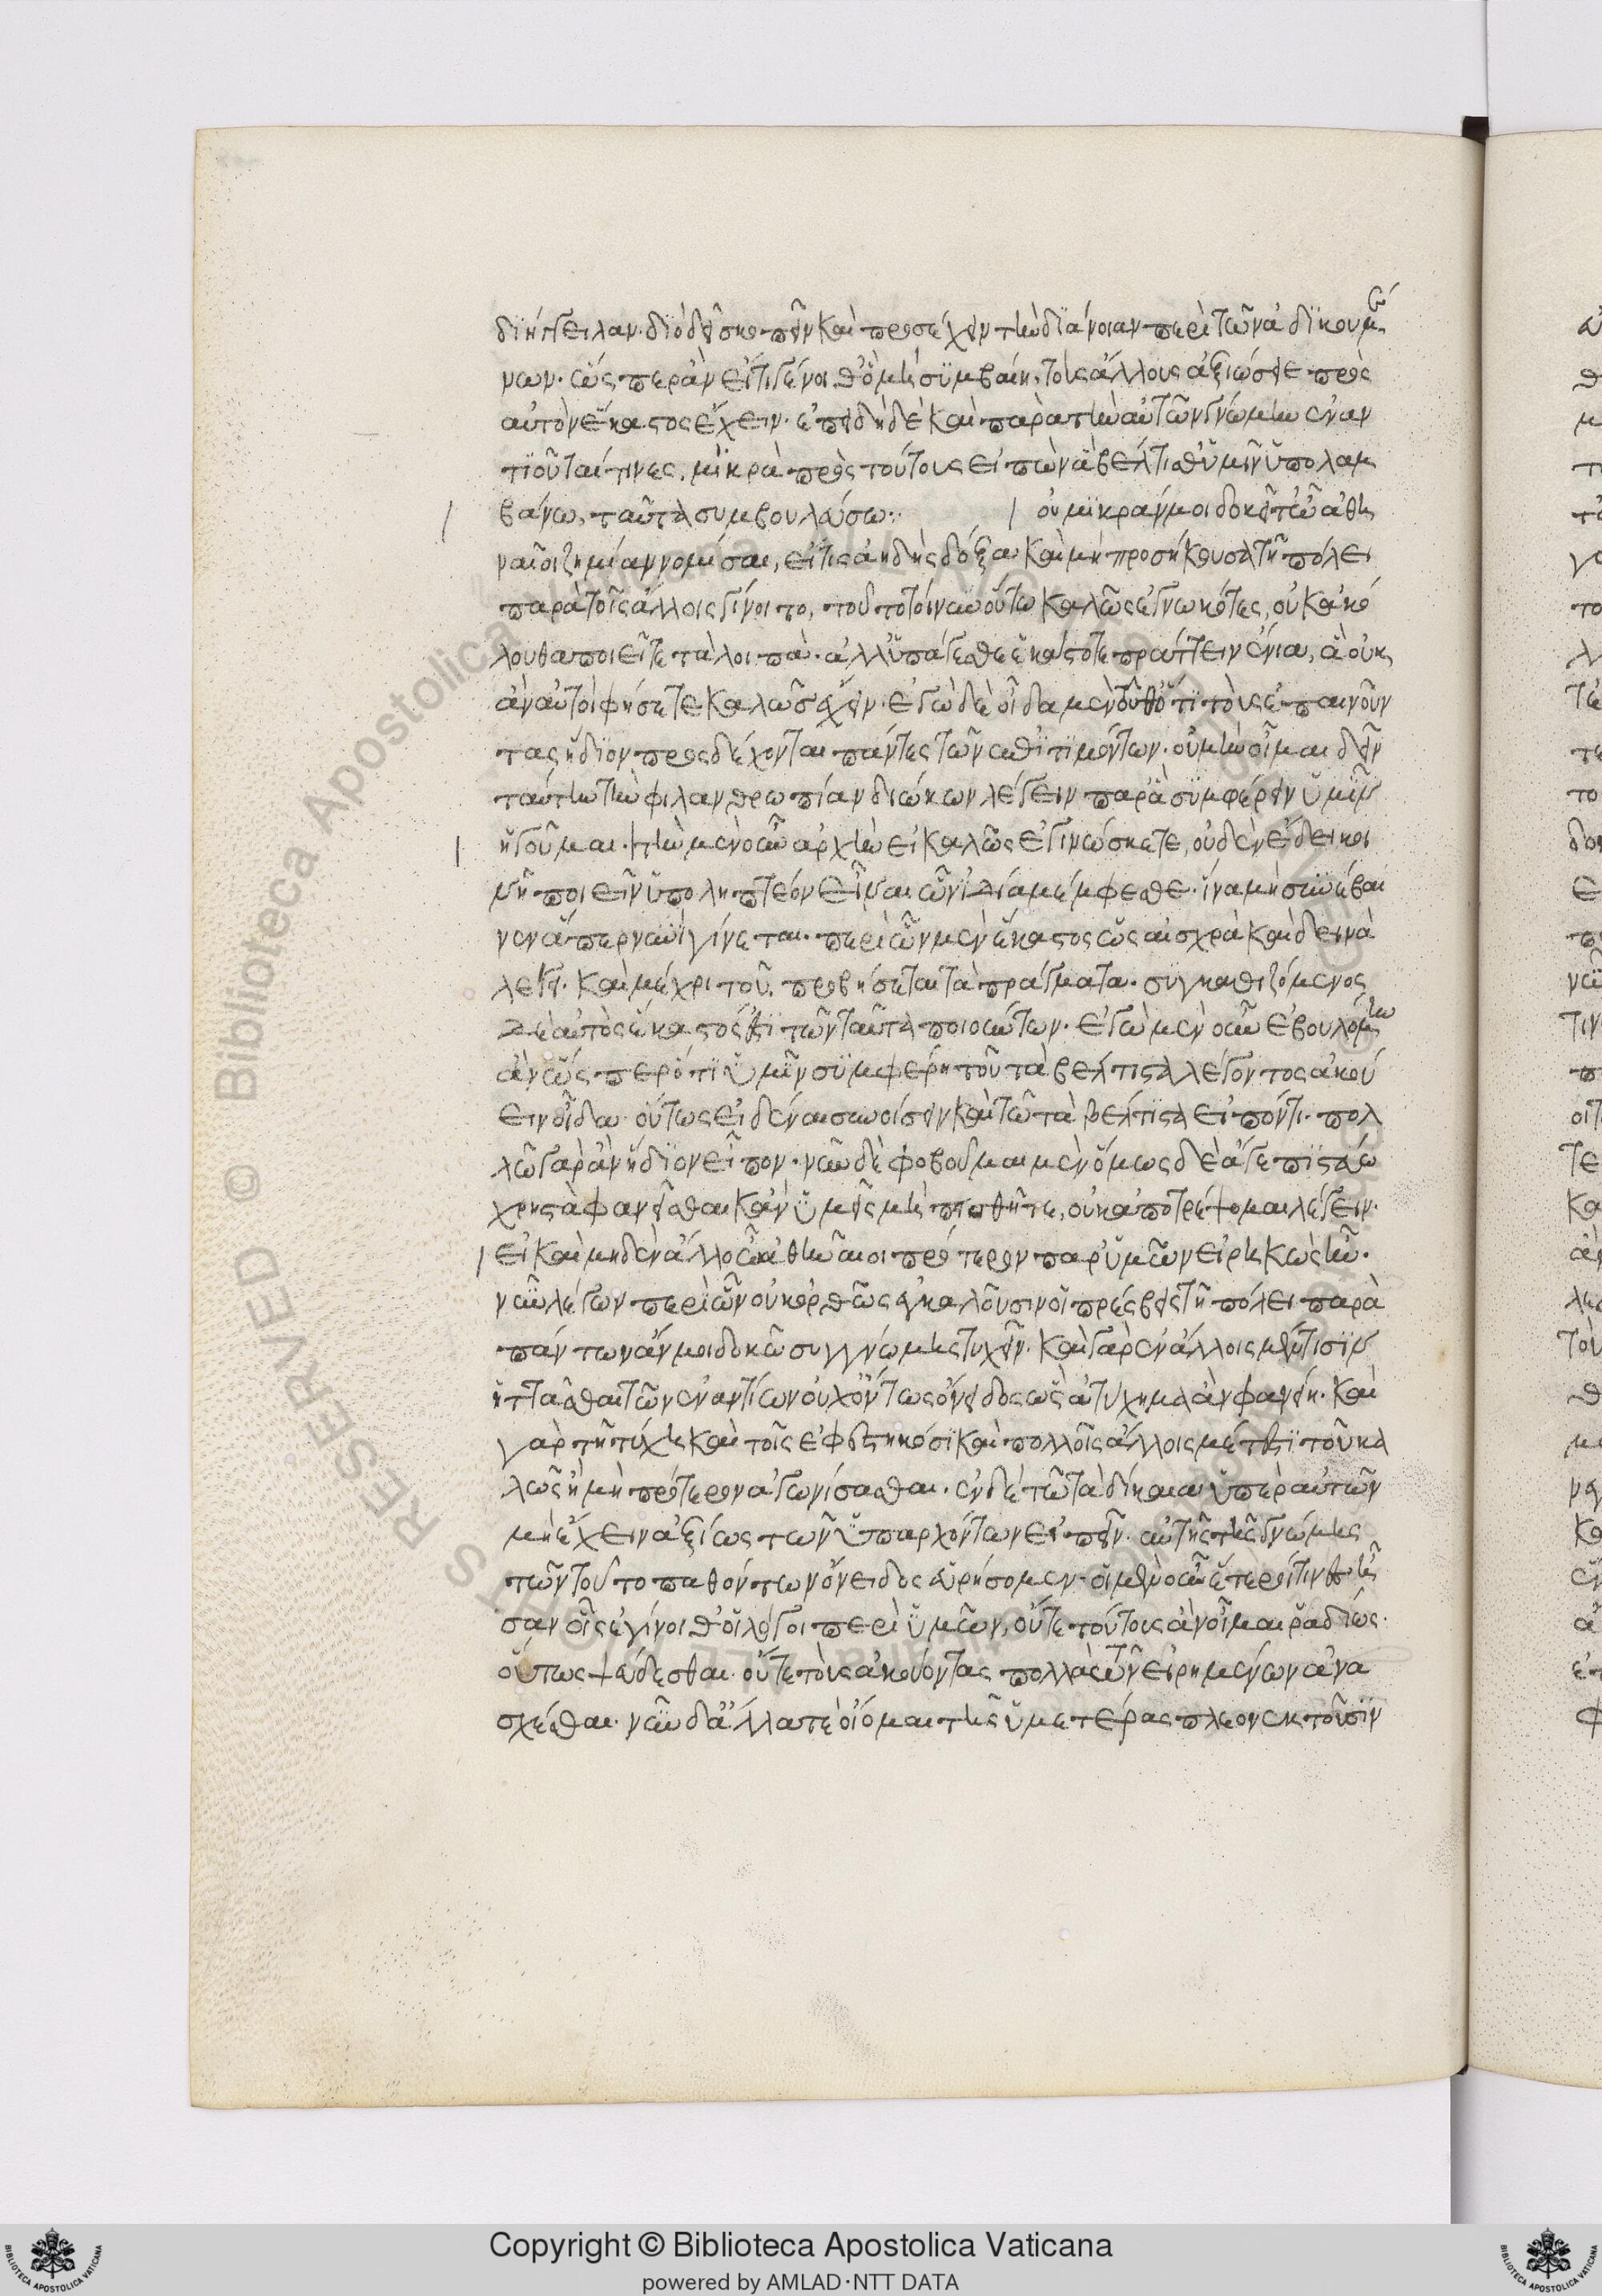 διήγγειλαν· διὸ δεῖ σκοπεῖν καὶ προσέχειν τὴν διάνοιαν περὶ τῶν ἀδικουμέ
νων· ὥσπερ ἂν εἴ τι γένοιθ' ὃ μὴ συμβαίη, τοὺς ἄλλους ἀξιώσειε πρὸς
αὐτὸν ἕκαστος ἔχειν· ἐπειδὴ δὲ καὶ παρὰ τὴν αὑτῶν γνώμην ἐναν
τιοῦνταί τινες, μικρὰ πρὸς τούτους εἰπὼν ἃ βέλτισθ' ὑμῖν ὑπολαμ
βάνω, ταῦτα συμβουλεύσω: οὐ μικρὰν μοι δοκεῖ τῶ ἀθη
ναῖοι ζημίαν νομίσαι, εἴ τις ἀηδὴς δόξα καὶ μὴ προσήκουσα τῆ πόλει
παρὰ τοῖς ἄλλοις γίνοιτο, τοῦτο τοίνυν οὕτω καλῶς ἐγνωκότες, οὐκ ἀκό
λουθα ποιεῖτε τὰ λοιπά· ἀλλ' ὑπάγεσθε ἑκάστοτε πράττειν ἔνια, ἃ οὐκ
ἂν αὐτοὶ φήσετε καλῶς ἔχειν· ἐγὼ δὲ οἶδα μὲν τοῦθ' ὅτι τοὺς ἐπαινοῦν
τας ἥδιον προσδέχονται πάντες τῶν ἐπιτιμώντων· οὐ μὴν οἶμαι δεῖν
ταύτην τὴν φιλανθρωπίαν διώκων λέγειν παρ' ἃ συμφέρειν ὑμῖν
ἡγοῦμαι· τὴν μὲν οὖν ἀρχὴν εἰ καλῶς ἐγινώσκετε, οὐδὲν ἔδει κοι
νῆ ποιεῖν ὑποληπτέον εἶναι ὧν ἰδία μέμφεσθε· ἵνα μὴ συνέβαι
νεν ἅπερ νυνὶ γίνεται· περιὼν μὲν ἕκαστος ὡς αἰσχρὰ καὶ δεινὰ
λέγει· καὶ μέχρι τοῦ προβήσεται τὰ πράγματα· συγκαθιζόμενος
δὲ αὐτὸς ἕκαστός ἐστι τῶν ταῦτα ποιούντων· ἐγὼ μὲν οὖν ἐβουλόμην
ἂν ὥσπερ ὅτι ὑμῖν συμφέρει τοῦ τὰ βέλτιστα λέγοντος ἀκού
ειν οἶδα· οὕτως εἰδέναι συνοίσειν καὶ τῶ τὰ βέλτιστα εἰπόντι· πολ
λῶ γὰρ ἂν ἥδιον εἶπον· νῦν δὲ φοβοῦμαι μὲν ὅμως δὲ ἅ γε πιστεύω
χρηστὰ φανεῖσθαι κἂν ὑμεῖς μὴ πεισθῆτε, οὐκ ἀποτρέψομαι λέγειν·
εἰ καὶ μηδὲν ἄλλο ὦ ἀθηναῖοι πρότερον παρ' ὑμῶν εἰρηκὼς ἦν·
νῦν λέγων περὶ ὧν οὐκ ὀρθῶς ἐγκαλοῦσιν οἱ πρέσβεις τῆ πόλει παρὰ
πάντων ἄν μοι δοκῶ συγγνώμης τυχεῖν· καὶ γὰρ ἐν ἄλλοις μέν τισιν
ἡττᾶσθαι τῶν ἐναντίων οὐχ οὕτως ὄνειδος ὡς ἀτύχημα ἂν φανείη· καὶ
γὰρ τῆ τύχη καὶ τοῖς ἐφεστηκόσι καὶ πολλοῖς ἄλλοις μέτεστι τοῦ κα
λῶς ἢ μὴ πρότερον ἀγωνίσασθαι· ἐν δὲ τῶ τὰ δίκαια ὑπὲρ αὑτῶν
μὴ ἔχειν ἀξίως τῶν ὑπαρχόντων εἰπεῖν· αὐτῆς τῆς γνώμης
τῶν τοῦτο παθόντων ὄνειδος εὑρήσομεν· εἰ μὲν οὖν ἕτεροί τινες ἦ
σαν οἷς ἐγίνοιθ' οἱ λόγοι περὶ ὑμῶν, οὔτε τούτους ἂν οἶμαι ῥαδίως·
οὕτως ψεύδεσθαι· οὔτε τοὺς ἀκούοντας πολλὰ τῶν εἰρημένων ἀνα
σχέσθαι· νῦν δ' ἄλλα τε οἴομαι τῆς ὑμετέρας πλεονεκτοῦσιν
Copyright © Biblioteca Apostolica Vaticana
powered by AMLAD·NTT DATA